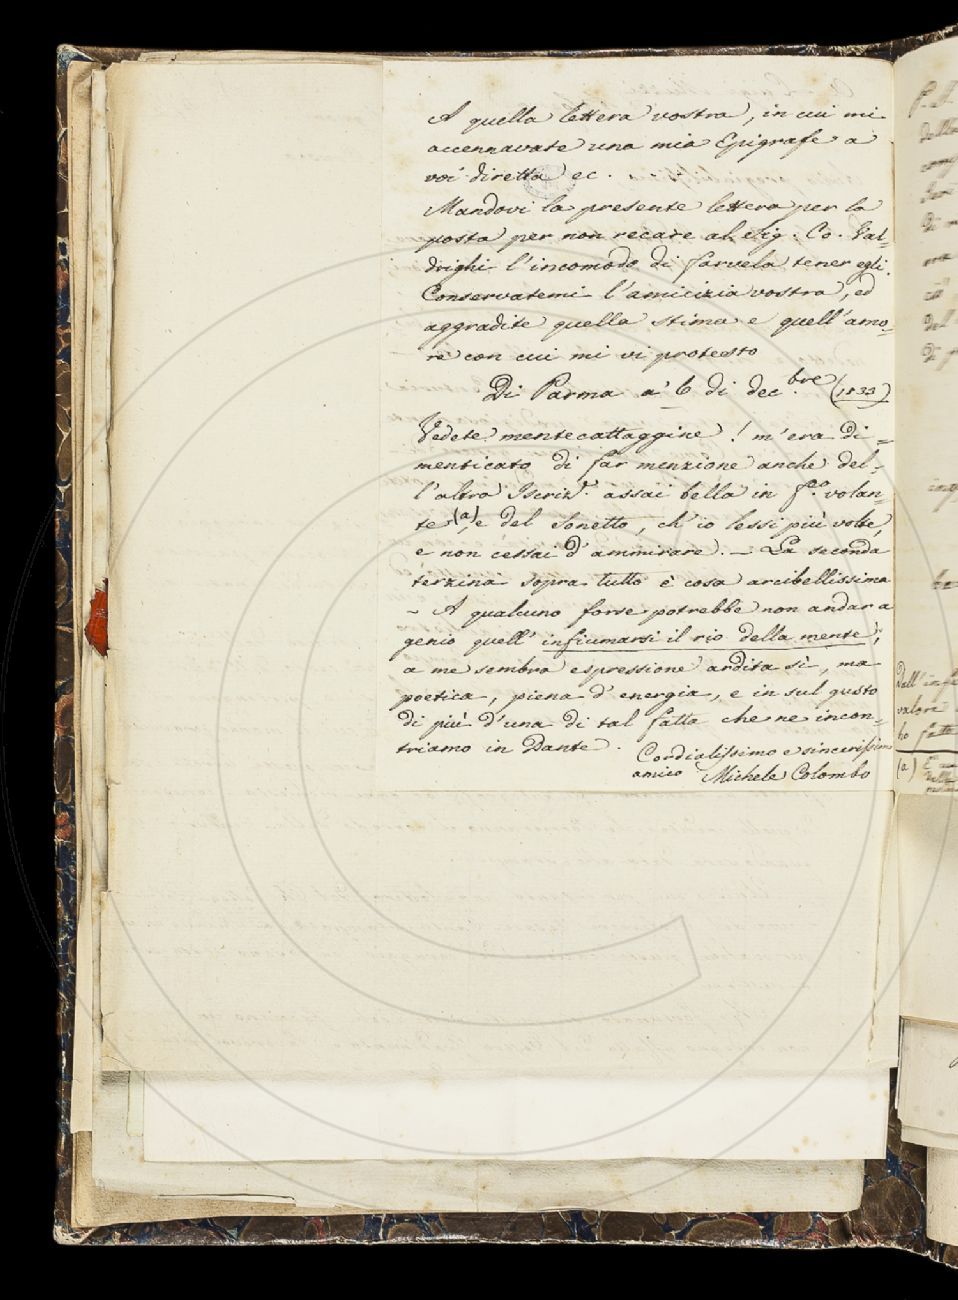 A quella lettera vostra, in cui mi
accennavate una mia Epigrafe a
voi diretta ec.
Mandovi la presente lettera per la
posta per non recare al Sig. Co. Val-
drighi l'incomodo di farvela tener egli.
Conservatemi l'amicizia vostra, ed
aggradite quella stima e quell'amo-
re con cui mi vi protesto
Di Parma a' 6 di dec.bre (1833)
Vedete mentecattaggine! m'era di=
menticato di far menzione anche del-
l'altra Iscriz.e assai bella in f.o volan-
te (a), e del Sonetto, ch'io lessi più volte,
e non cessai d'ammirare. — La seconda
terzina sopra tutto è cosa arcibellissima
- A qualcuno forse potrebbe non andar a
genio quell' infiumarsi il rio della mente;
a me sembra espressione ardita sì, ma
poetica, piena d'energia, e in sul gusto
di più d'una di tal fatta che ne incon-
triamo in Dante.
Cordialissimo e sincerissimo
amico Michele Colombo
Dall'
valore
ho fatto
(a)